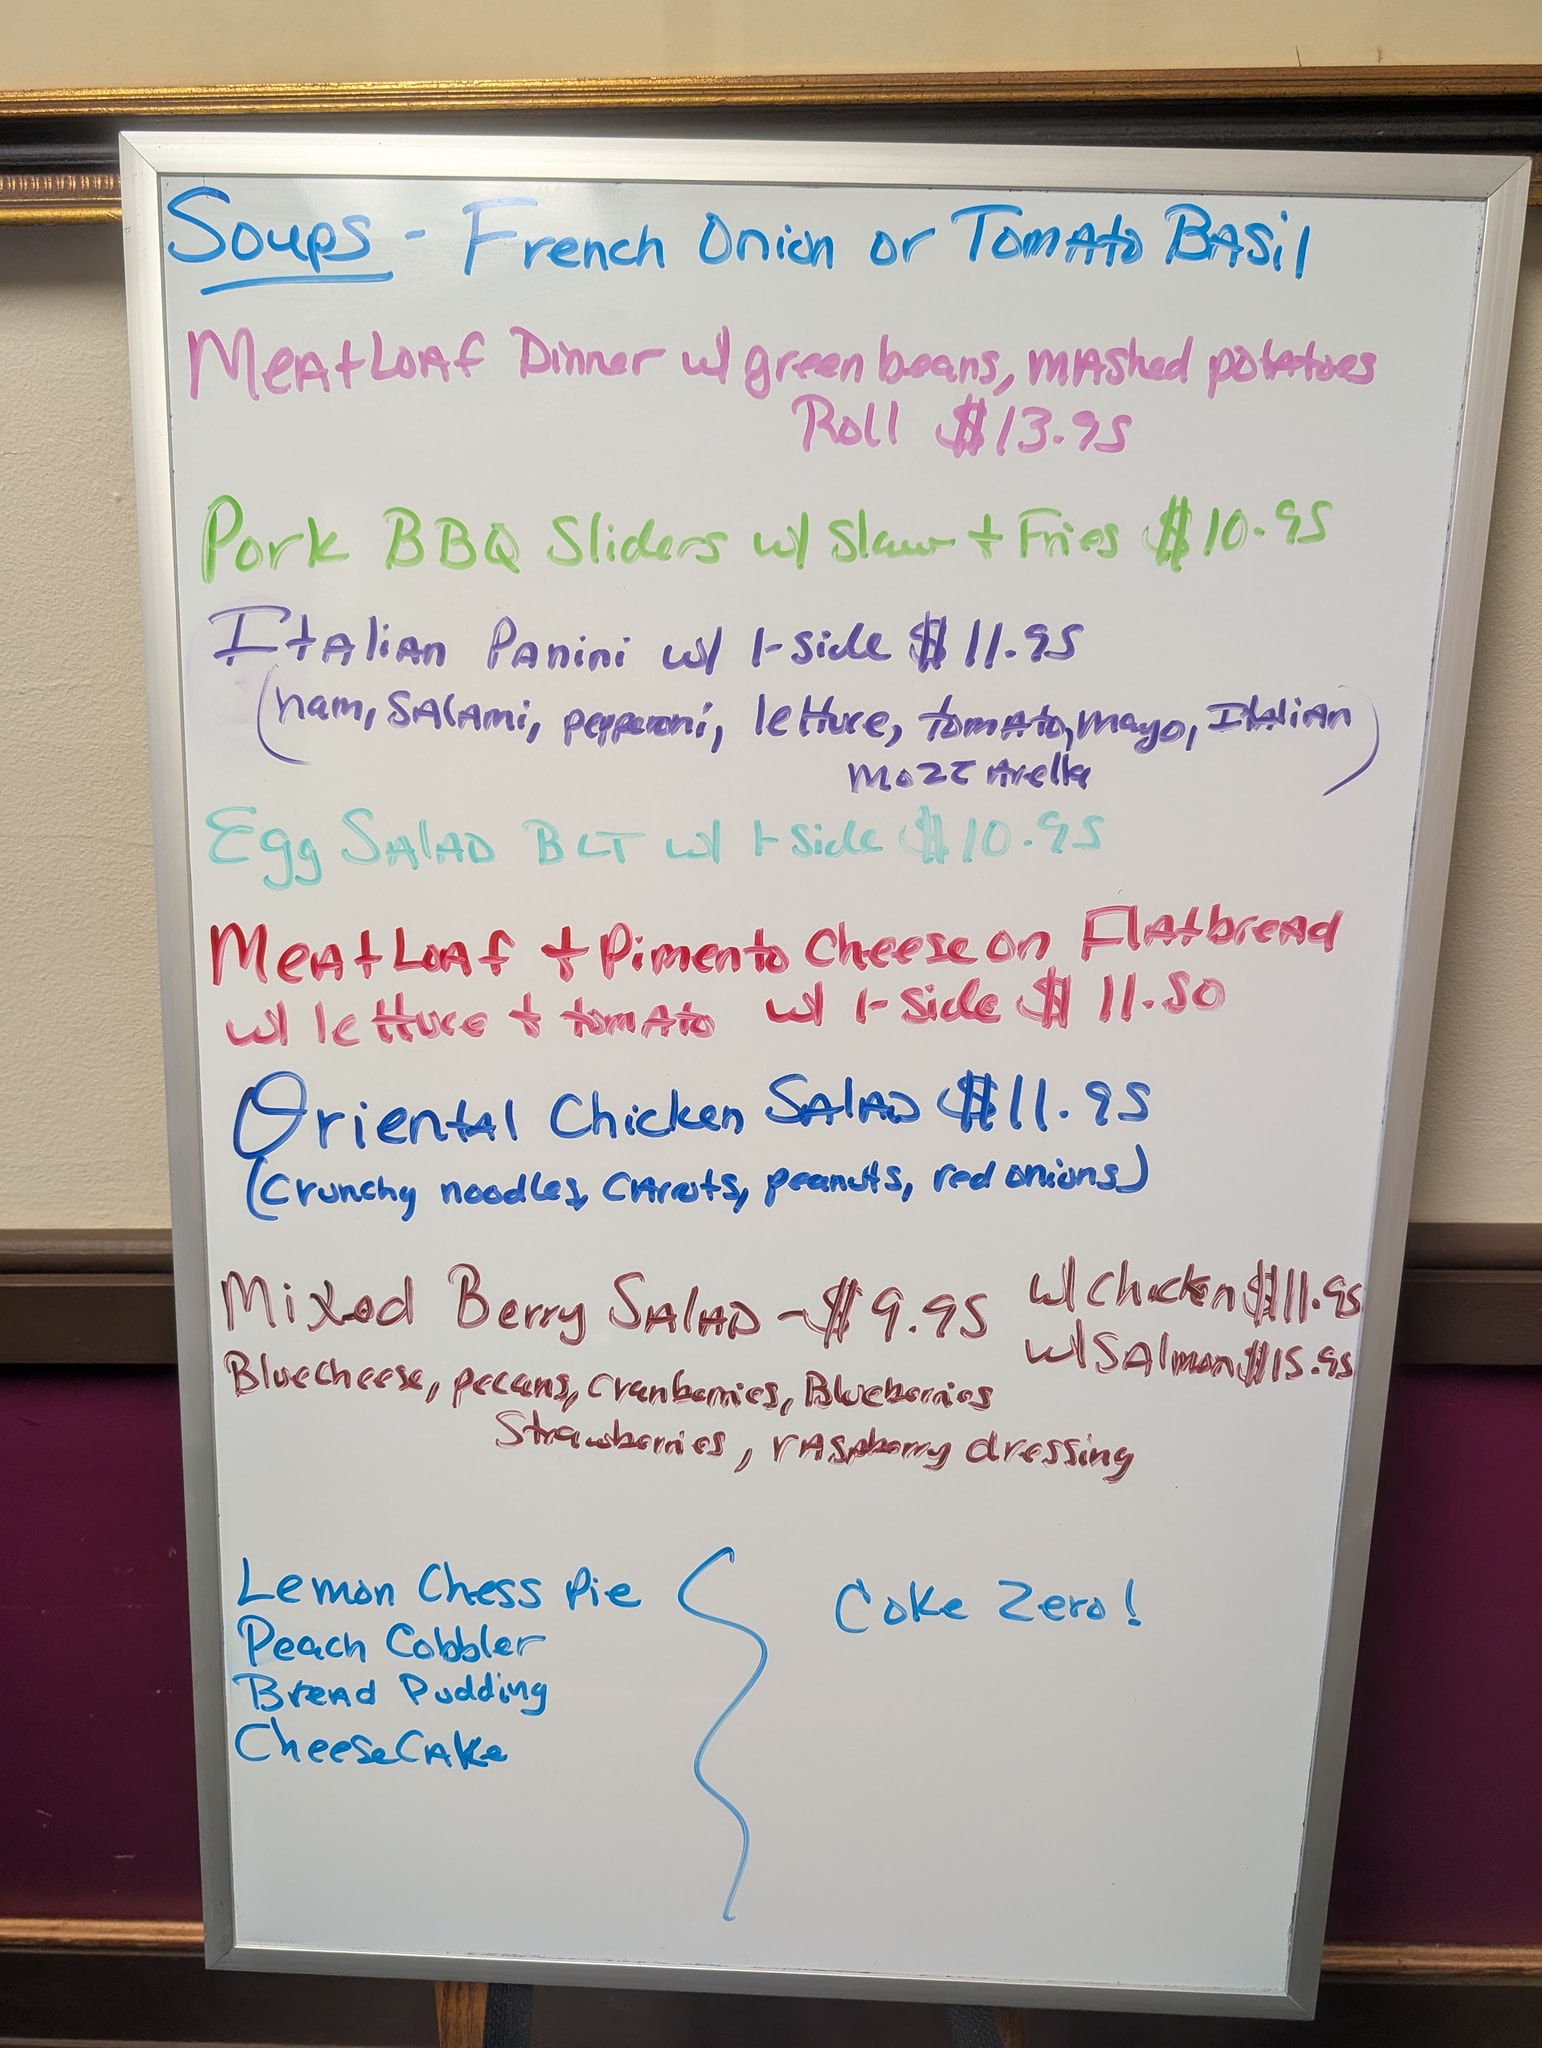 Soups - French Onion or Tomato Basil
Meatloaf Dinner w/ green beans, mashed potatoes
Roll $13.95
Pork BBQ Sliders w/ Slaw + Fries $10.95
Italian Panini w/ 1-side $11.95
(ham, salami, pepperoni, lettuce, tomato, mayo, Italian
mozzarella)
Egg Salad BLT w/ 1-side $10.95
Meatloaf + Pimento Cheese on Flatbread
w/ lettuce + tomato w/ 1-side $11.50
Oriental Chicken Salad $11.95
(Crunchy noodles, carrots, peanuts, red onions)
Mixed Berry Salad - $9.95 w/ Chicken $11.95
w/ Salmon $15.95
Bluecheese, pecans, cranberries, Blueberries
Strawberries, raspberry dressing
Lemon Chess Pie
Peach Cobbler
Bread Pudding
CheeseCake
Coke Zero!